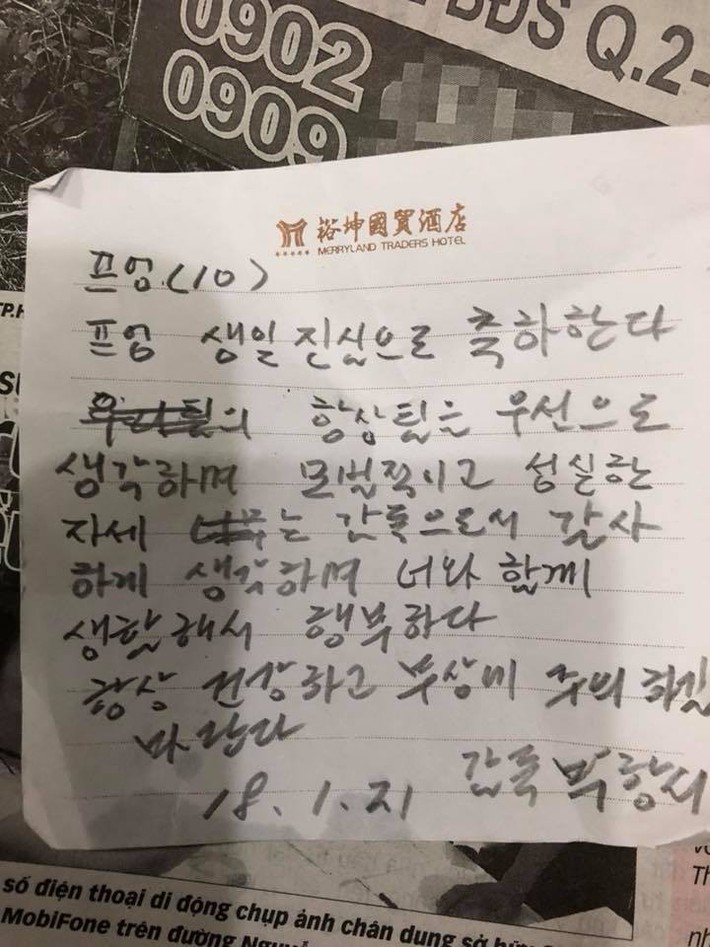 0902
BĐS Q.2-
0909
裕坤國貿酒店
MERRYLAND TRADERS HOTEL
프엉(10)
프엉 생일 진심으로 축하한다
항상팀을 우선으로
생각하며 모범적이고 성실한
자세 는 감독으로서 감사
하게 생각하며 너와 함께
생활해서 행복하다
항상 건강하고 부상에 주의 하길
바란다
감독 박항서
18.1.21
số điện thoại di động chụp ảnh chân dung sở hữu
MobiFone trên đường